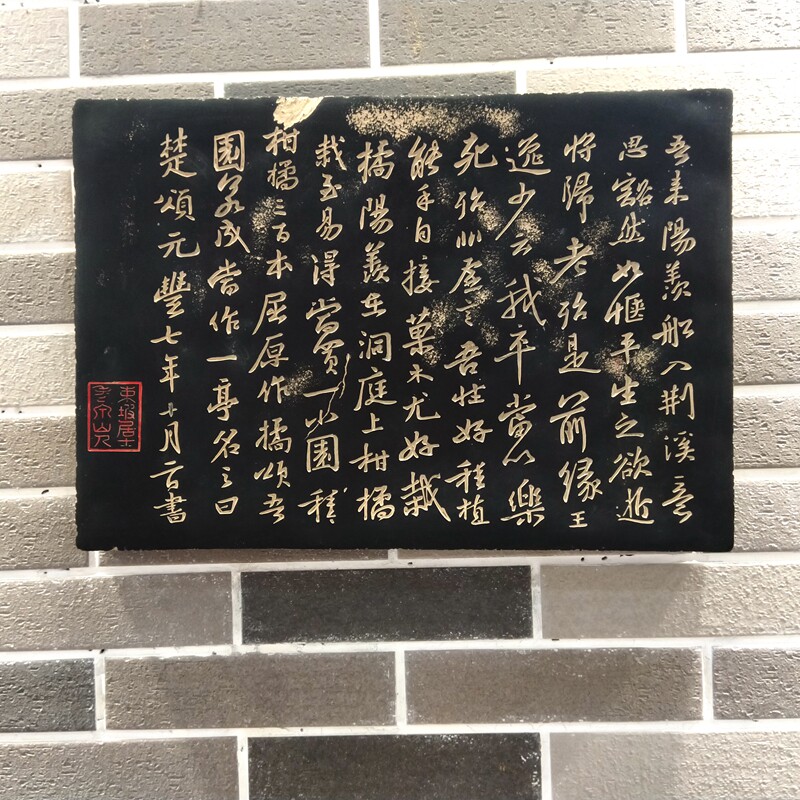 吾来陽羨船入荆溪意
思豁然如愜平生之欲逝
将歸老殆是前緣王
逸少云我卒當以樂
死殆非虛言吾性好種植
能手自接菓木尤好栽
橘陽羨在洞庭上柑橘
栽至易得當買一小園種
柑橘三百本屈原作橘頌吾
園若成當作一亭名之曰
楚頌元豐七年十月二日書
東坡居士